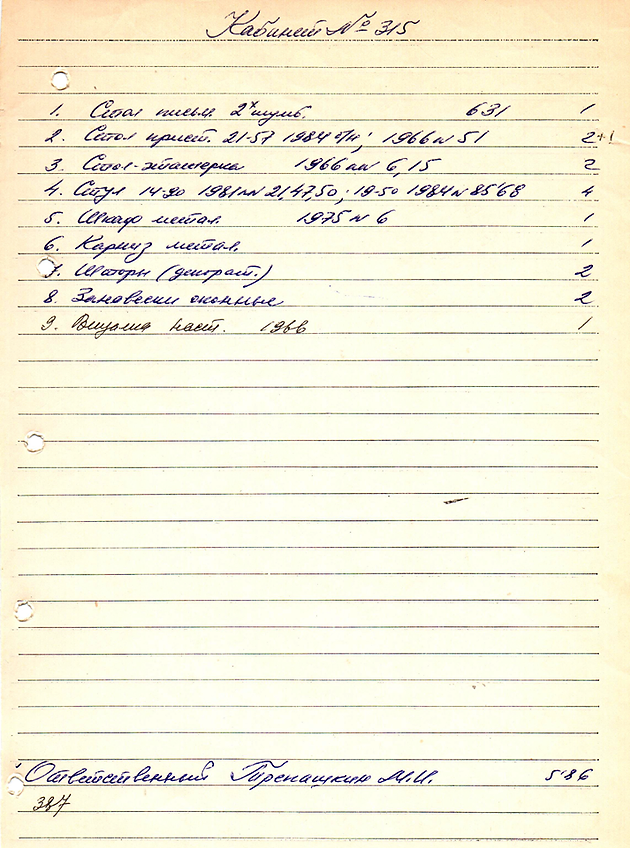 Кабинет № 315
1. Стол письм. 2х тумб. 631 1
2. Стол прист. 21-57 1984 1966 № 51 2+1
3. Стол-этажерка 1966 6,15 2
4. Стул 14-90 1981 21,47,50; 19-50 1984 № 85'68 4
5. Шкаф метал. 1975 № 6 1
6. Карниз метал. 1
7. Шторы (декорат.) 2
8. Занавески оконные 2
9. наст. 1966 1
Ответственный Трепашкин М.И. 586
387